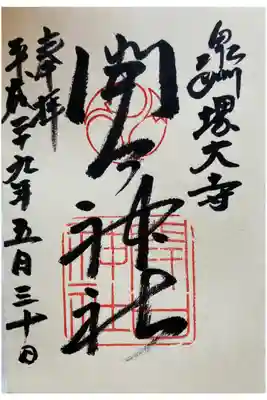 泉州堺大寺
開口神社
奉拝
平成二十九年五月三十日